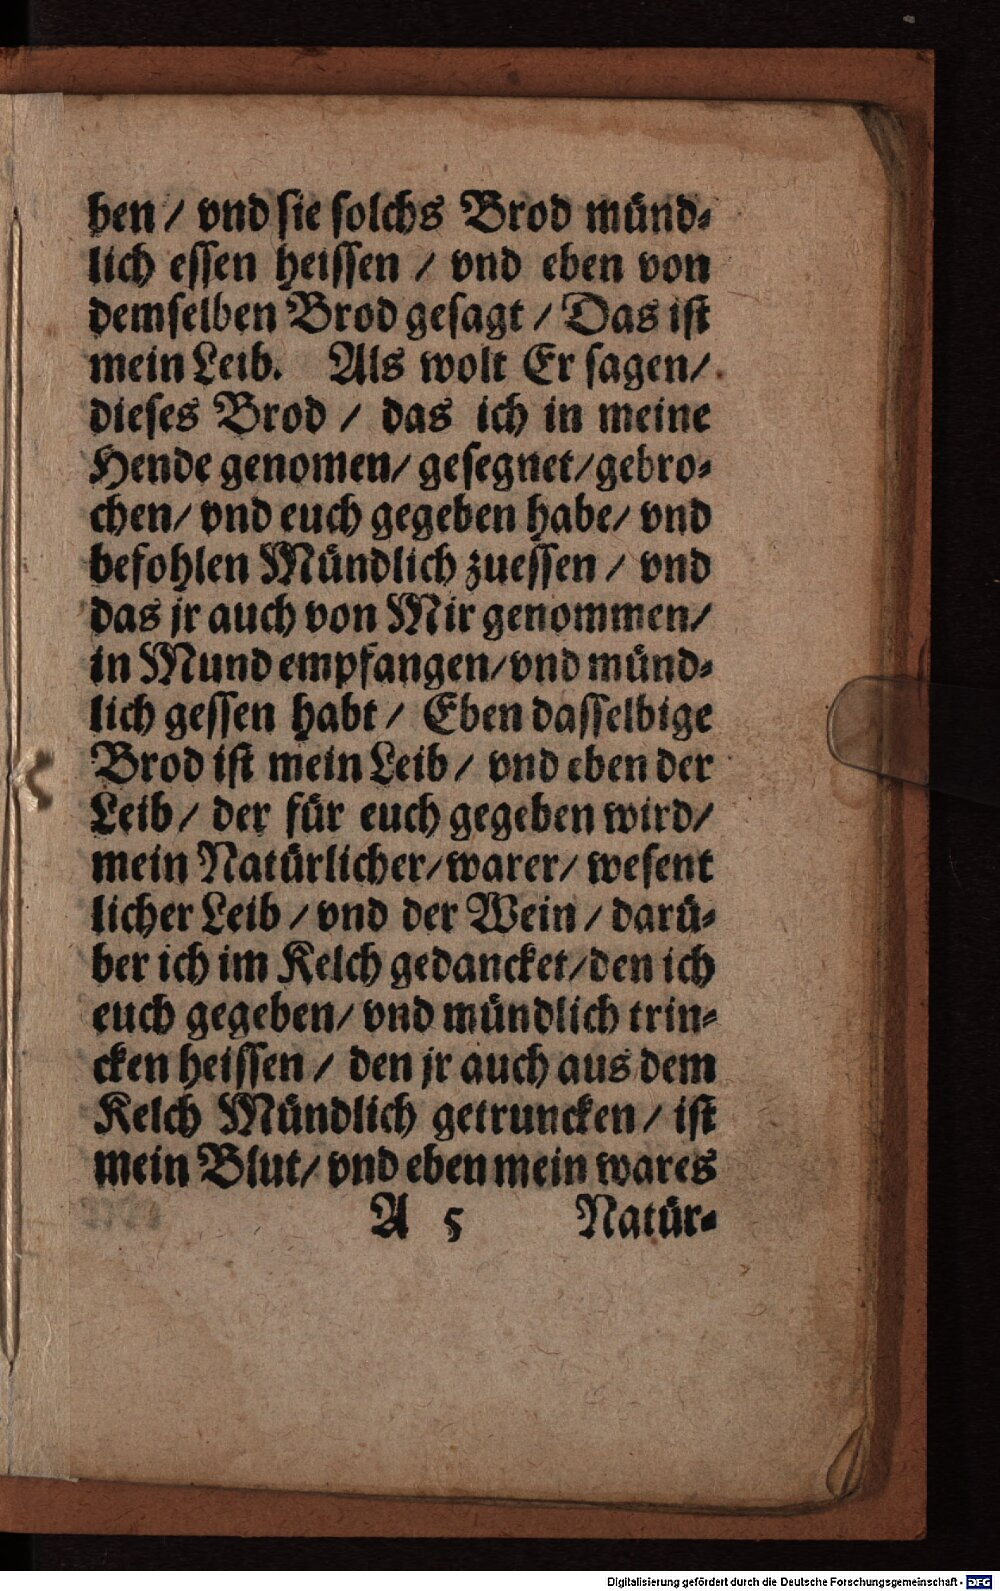 ben / vnd sie solchs Brod münd-
lich essen heissen / vnd eben von
demselben Brod gesagt / Das ist
mein Leib. Als wolt Er sagen /
dieses Brod / das ich in meine
Hende genomen / gesegnet / gebro-
chen / vnd euch gegeben habe / vnd
befohlen Mündlich zuessen / vnd
das jr auch von Mir genommen /
in Mund empfangen / vnd münd-
lich gessen habt / Eben dasselbige
Brod ist mein Leib / vnd eben der
Leib / der für euch gegeben wird /
mein Natürlicher / warer / wesent
licher Leib / vnd der Wein / darü-
ber ich im Kelch gedancket / den ich
euch gegeben / vnd mündlich trin-
cken heissen / den jr auch aus dem
Kelch Mündlich getruncken / ist
mein Blut / vnd eben mein wares
A 5 Natür-
Digitalisierung gefördert durch die Deutsche Forschungsgemeinschaft - DFG